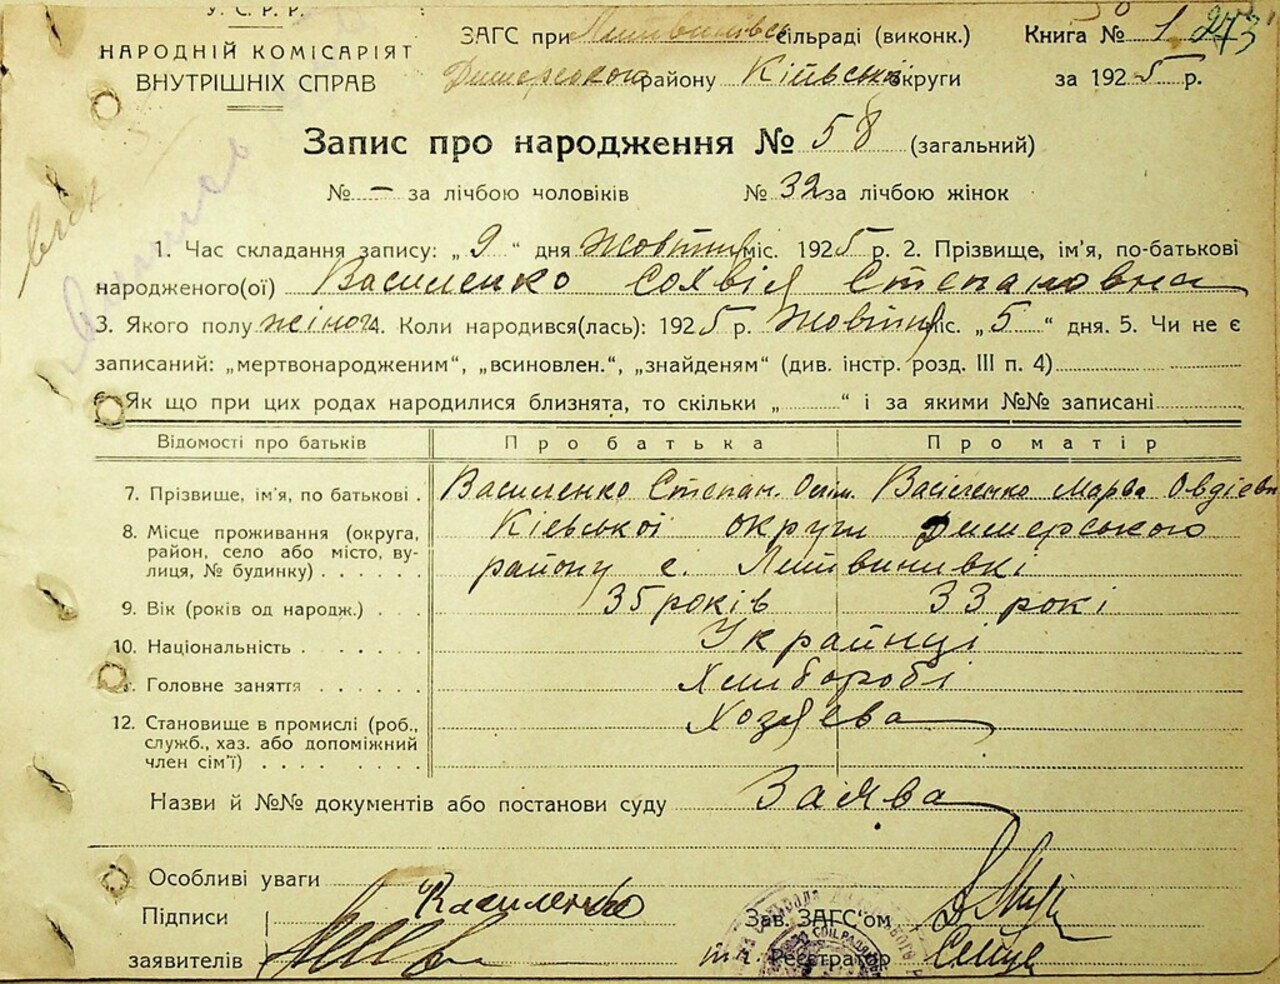 У. С. Р. Р.
НАРОДНІЙ КОМІСАРІЯТ
ВНУТРІШНІХ СПРАВ
ЗАГС при Литвинівс сільраді (виконк.) Книга № 1 273
Димерського району Київської округи за 1925 р.
Запис про народження № 58 (загальний)
№ — за лічбою чоловіків № 32 за лічбою жінок
1. Час складання запису: „ 9 “ дня Жовтня міс. 1925 р. 2. Прізвище, ім'я, по-батькові
народженого(ої) Василенко Сохвія Степановна
3. Якого полу жіноч 4. Коли народився(лась): 1925 р. Жовтня міс. „ 5 “ дня. 5. Чи не є
записаний: „мертвонародженим“, „всиновлен.“, „знайденям“ (див. інстр. розд. III п. 4)
Як що при цих родах народилися близнята, то скільки „ “ і за якими №№ записані
Відомості про батьків Про батька Про матір
7. Прізвище, ім'я, по батькові . Василенко Степан. Василенко Марва Овдієвн
8. Місце проживання (округа, Кіевської округи Димерського
район, село або місто, ву-
лиця, № будинку) . . . . . . району с. Литвинивкі
9. Вік (років од народж.) . . . 35 років 33 рокі
10. Національність . . . . . . Украйнці
Головне заняття . . . . . . Хлиборобі
12. Становище в промислі (роб., Хозяева
служб., хаз. або допоміжний
член сім'ї) . . . . . . .
Назви й №№ документів або постанови суду Заява
Особливі уваги
Підписи Василенко Зав. ЗАГС'ом
заявителів Реєстратор